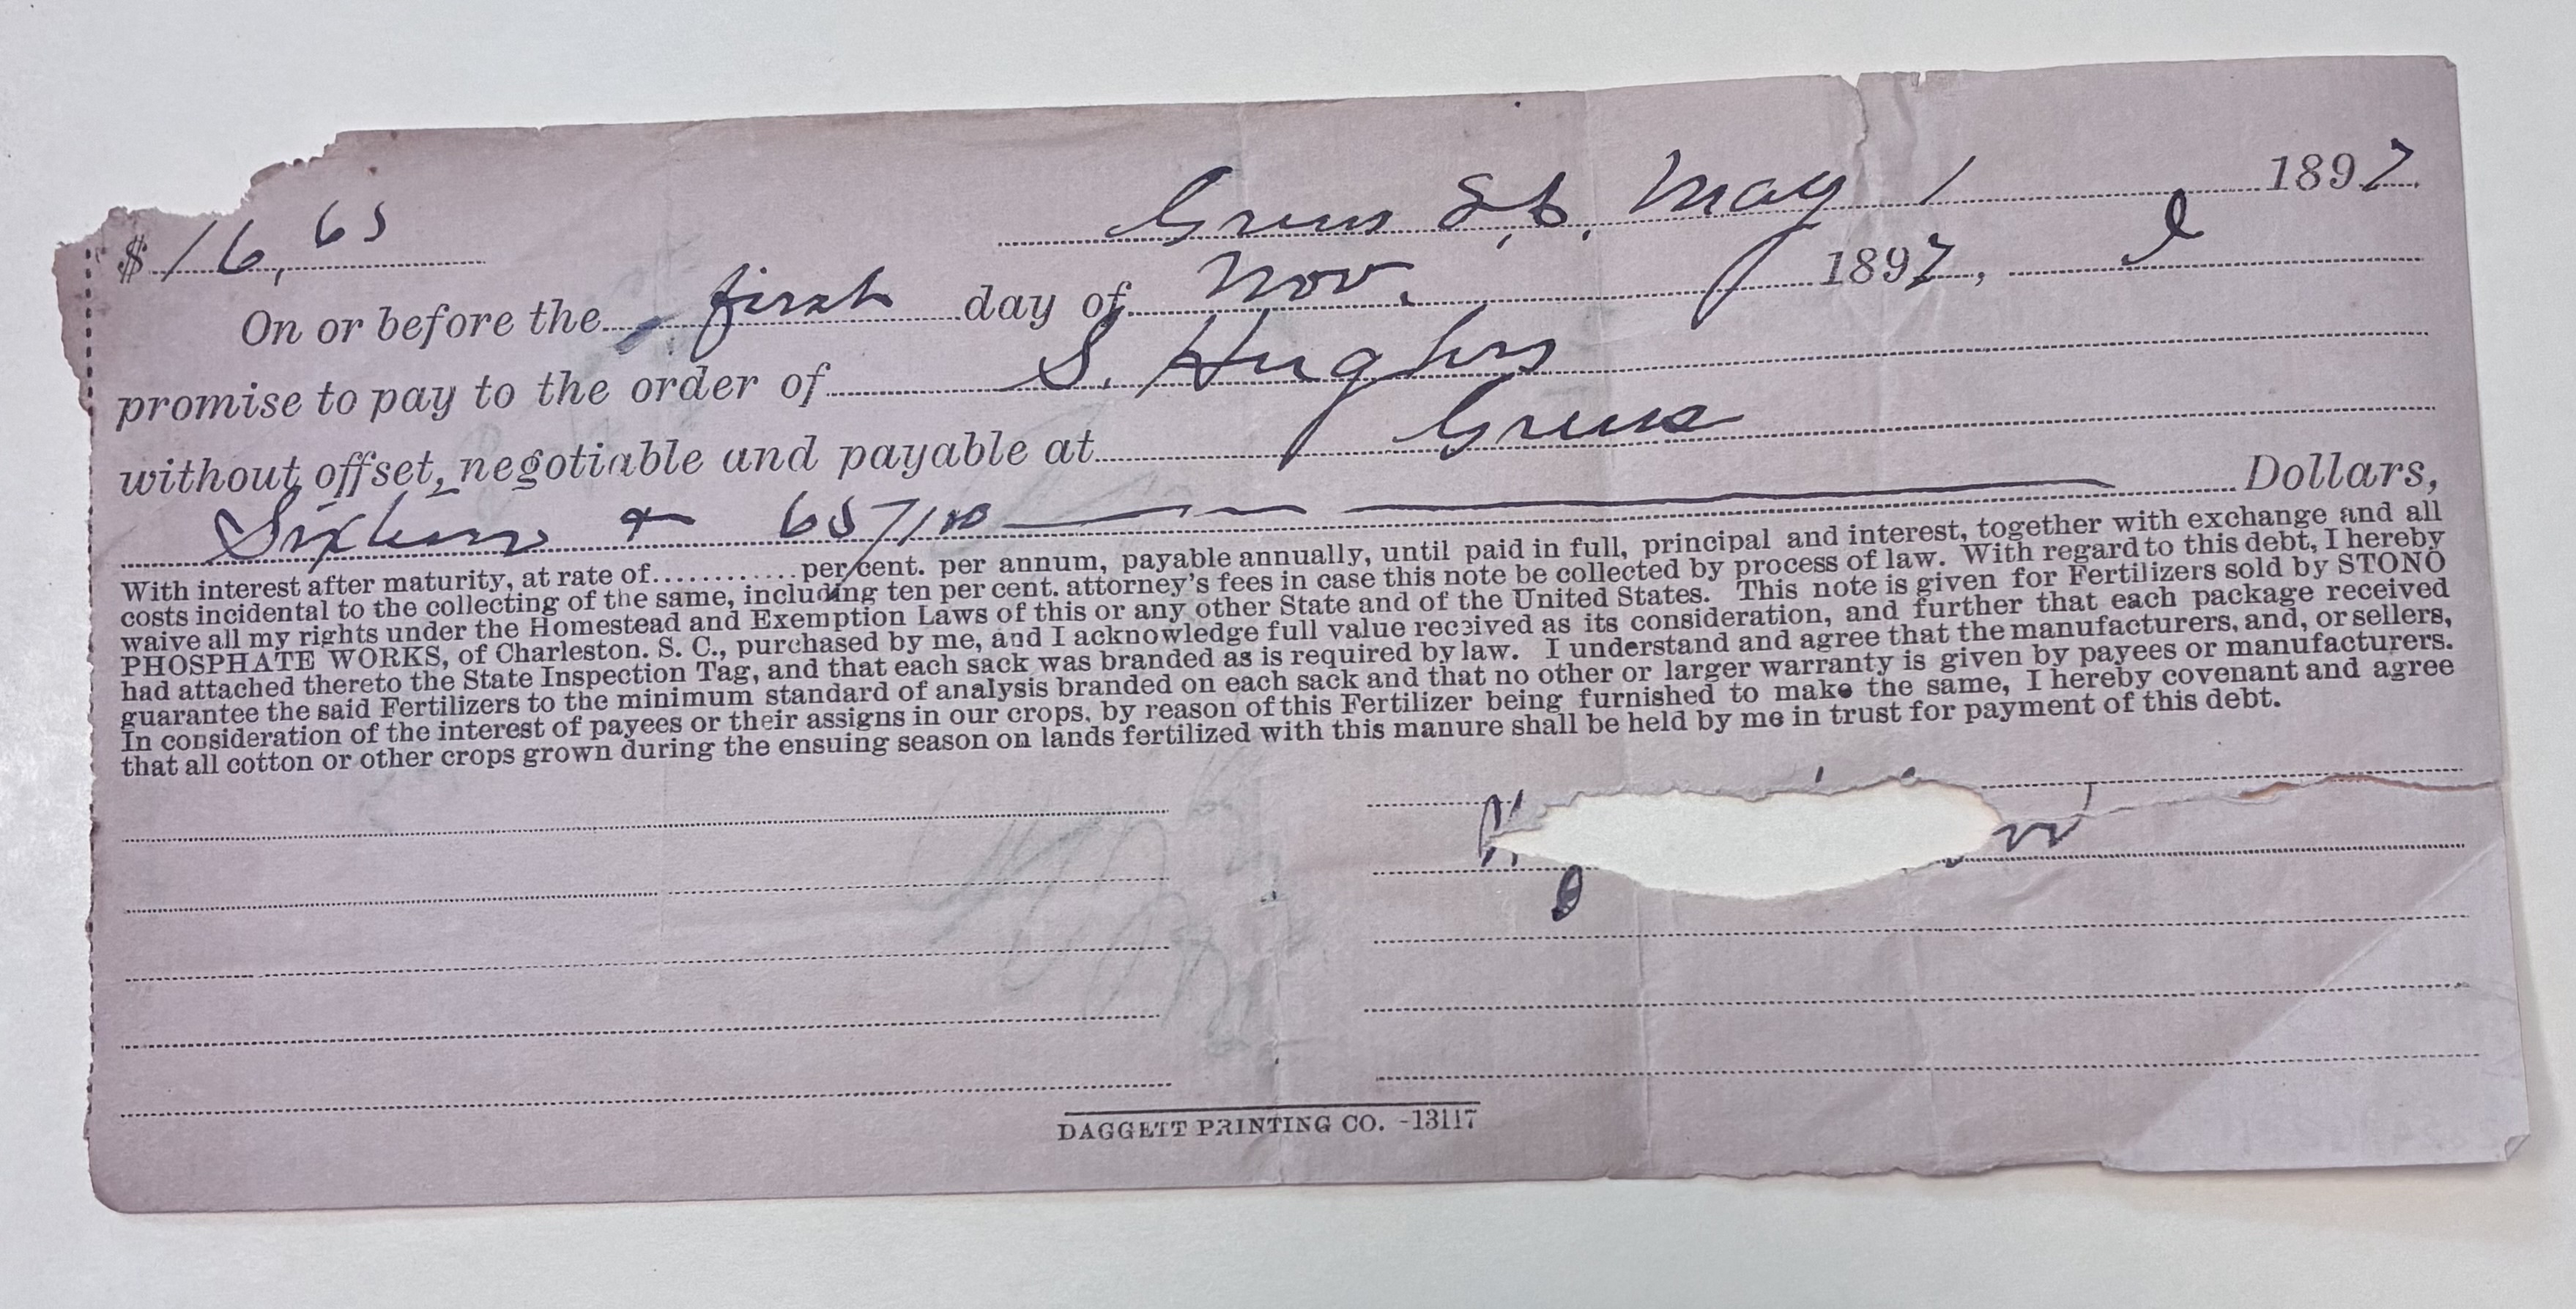 Greers S.C. May 1 1897
$ 16,65
On or before the first day of Nov. 1897, I
promise to pay to the order of S. Hughes
without offset, negotiable and payable at Greers
Sixteen & 65/100 Dollars,
With interest after maturity, at rate of............per cent. per annum, payable annually, until paid in full, principal and interest, together with exchange and all
costs incidental to the collecting of the same, including ten per cent. attorney's fees in case this note be collected by process of law. With regard to this debt, I hereby
waive all my rights under the Homestead and Exemption Laws of this or any other State and of the United States. This note is given for Fertilizers sold by STONO
PHOSPHATE WORKS, of Charleston. S. C., purchased by me, and I acknowledge full value received as its consideration, and further that each package received
had attached thereto the State Inspection Tag, and that each sack was branded as is required by law. I understand and agree that the manufacturers, and, or sellers,
guarantee the said Fertilizers to the minimum standard of analysis branded on each sack and that no other or larger warranty is given by payees or manufacturers.
In consideration of the interest of payees or their assigns in our crops, by reason of this Fertilizer being furnished to make the same, I hereby covenant and agree
that all cotton or other crops grown during the ensuing season on lands fertilized with this manure shall be held by me in trust for payment of this debt.
DAGGETT PRINTING CO. -13117